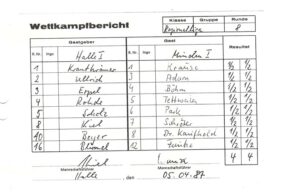 Wettkampfbericht
Klasse Gruppe Runde
8
Gastgeber Gast Resultat
R.Nr. Ingo Halle I R.Nr. Ingo München I
1 1 Krause ½ ½
2 Ullrich 2 Adam ½ ½
3 Espel 3 Böhm ½ ½
4 Rohde 4 ½ ½
5 Scholz 6 Park ½ ½
8 Kiel 7 ½ ½
10 Beyer 8 Dr. Kaufhold ½ ½
16 12 Funke ½ ½
4 4
Mannschaftsführer Mannschaftsführer
Halle den 05.04.87